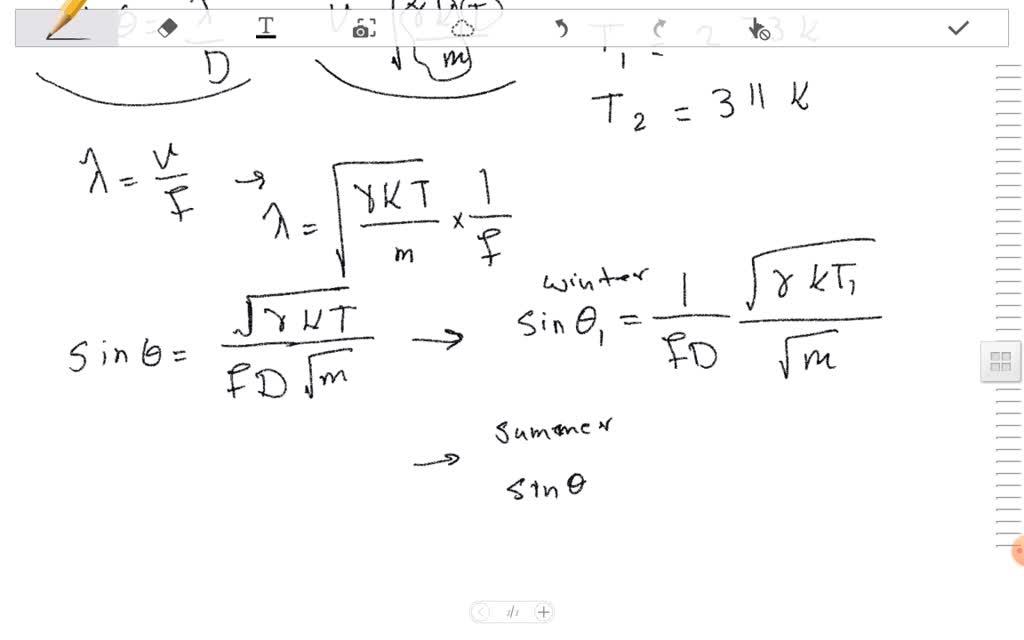 θ = λ / D
T₁ = 273 K
T₂ = 311 K
λ = v / f → λ = √(γKT / m) × 1 / f
winter
sin θ = √(γKT) / (FD √m) → sin θ₁ = 1 / (FD) √(γKT₁) / √m
summer
→ sin θ